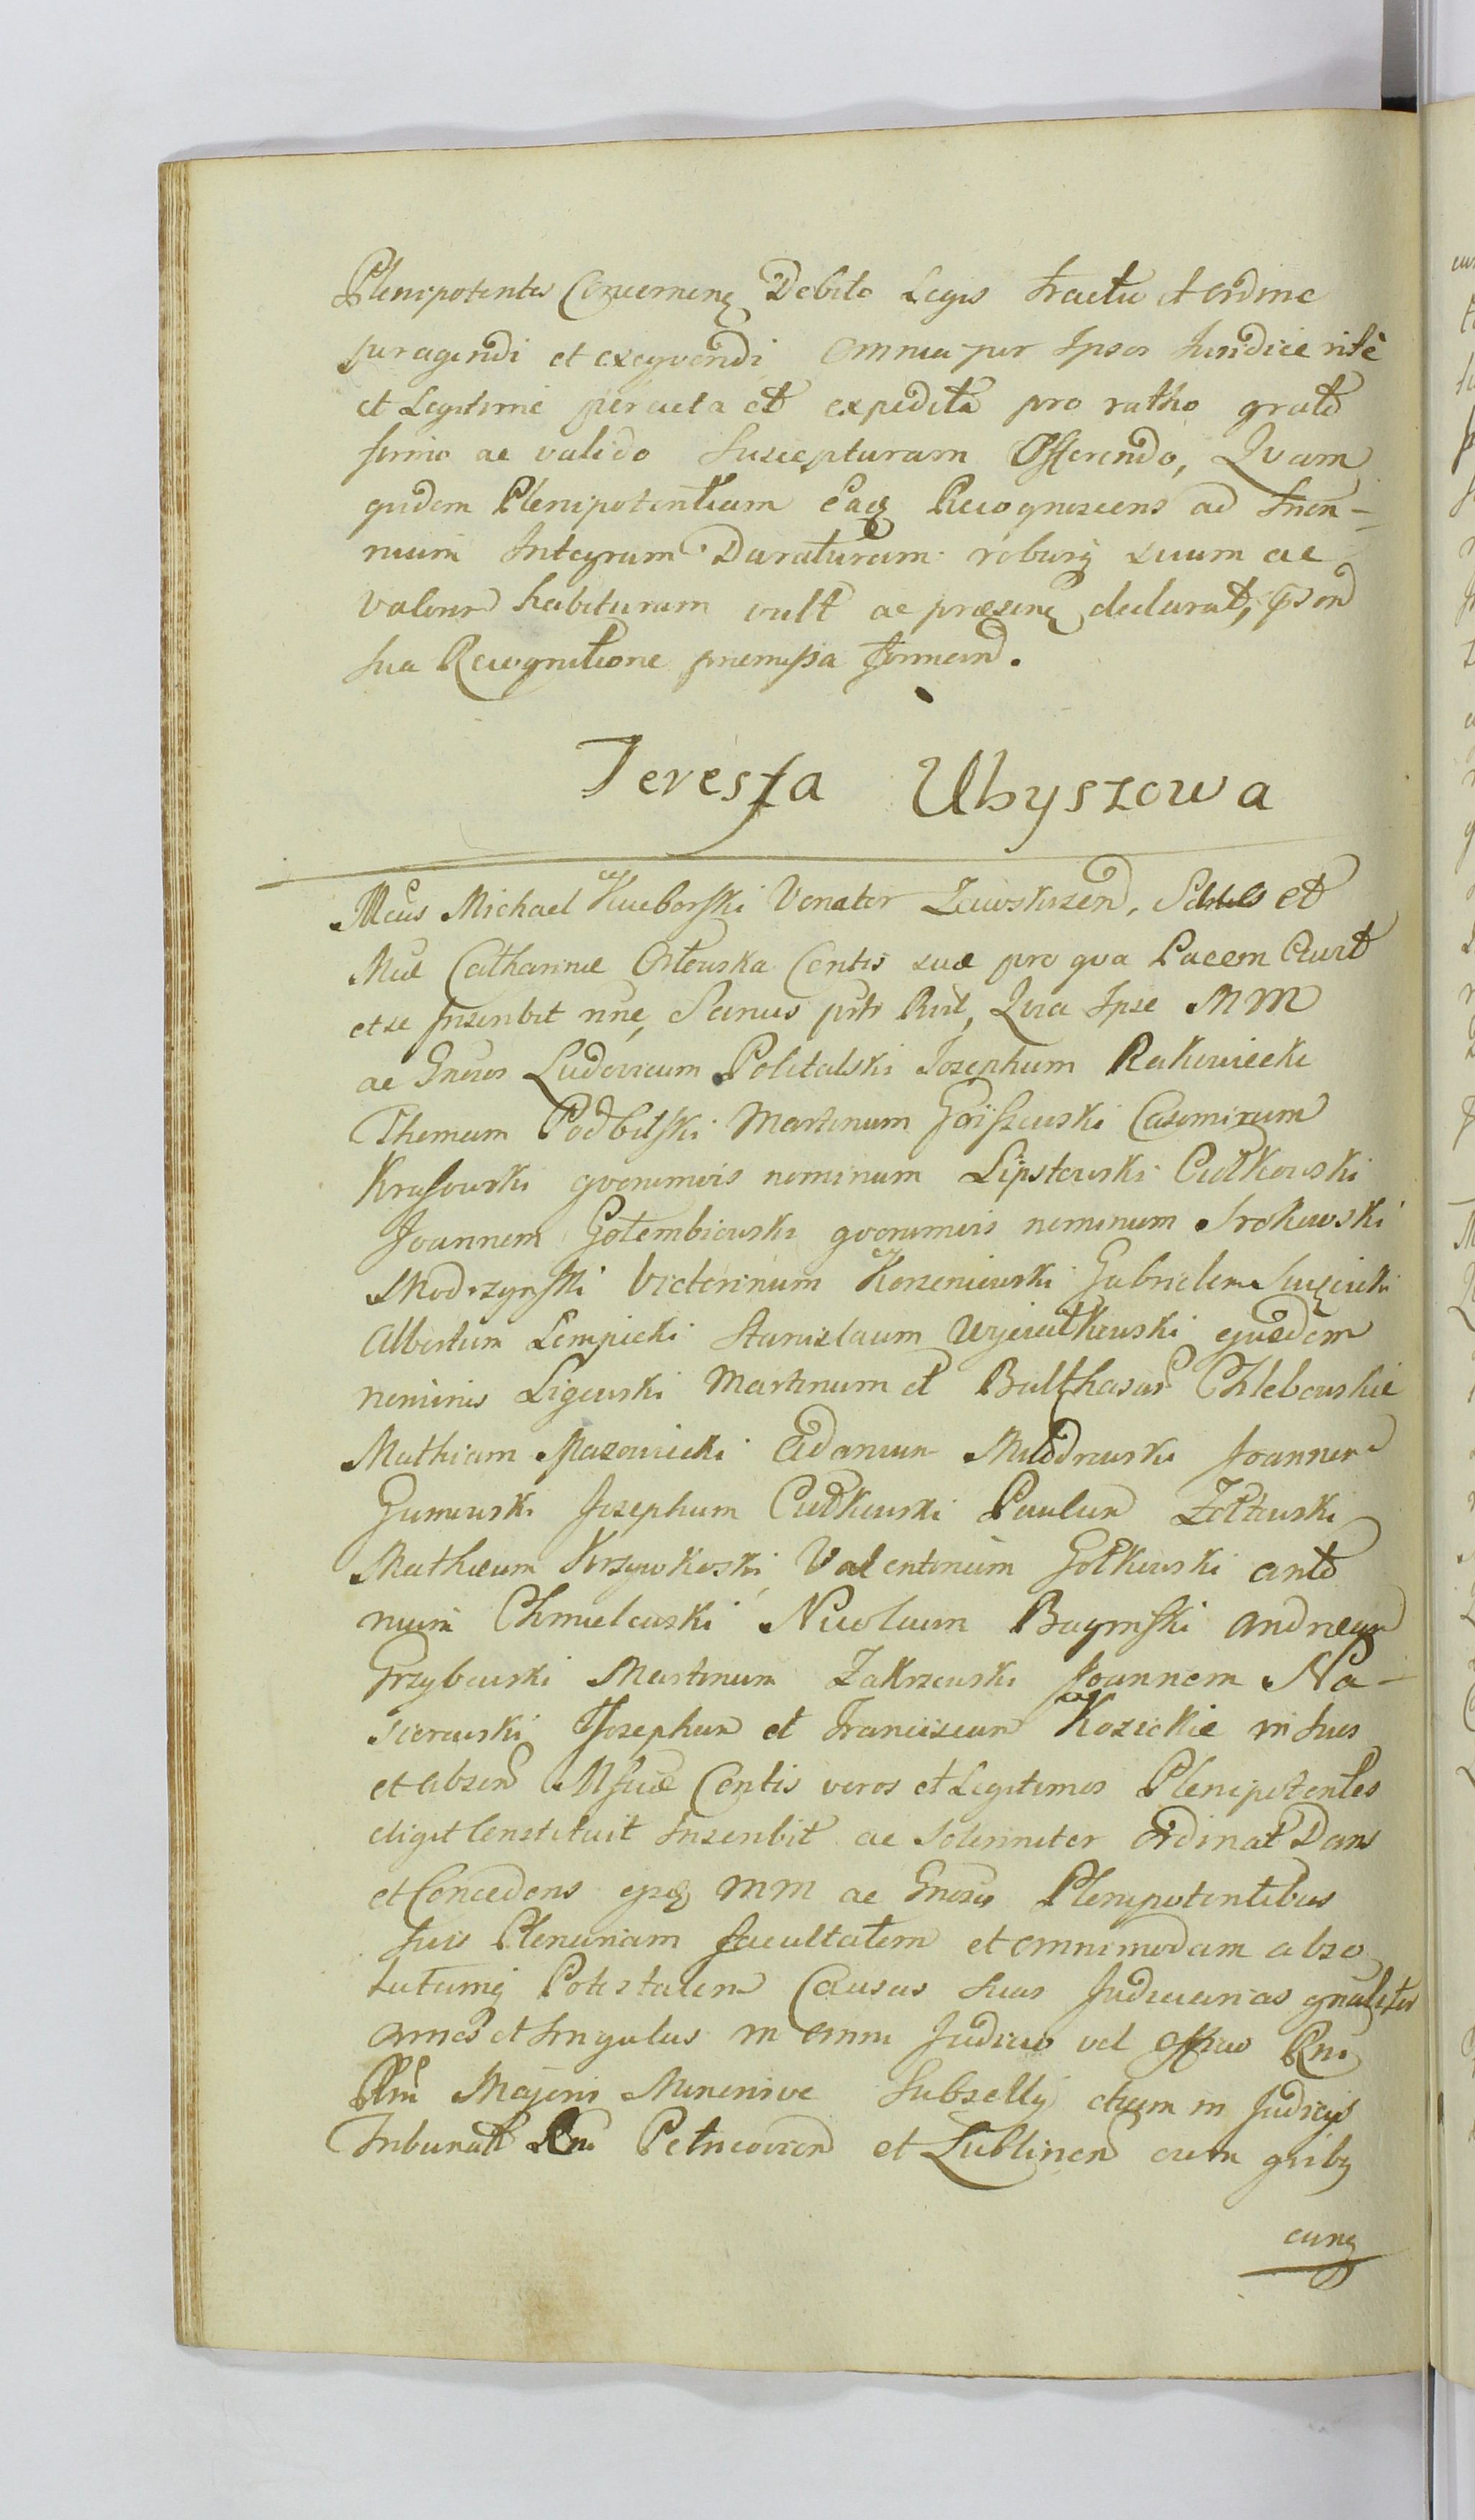 Plenipotentes Concernen Debito Legis tractu et ordine
peragendi et exeqvendi omnia per Ipsos Iuridice ritè
et Legitime peracta et expedita pro ratho grato
firmo ac valido Suscepturam Offerendo, Qvam
qvidem Plenipotentiam Eaq Recognoscens ad trien-
nium Integrum Duraturam roburq suum ac
valorem habituram vult ac præsenq declarat,
sua Recognitione præmissa
Teressa Uhyszowa
Mcus Michael Venator Zawskrzen, et
Mcæ Catharinæ Orłowska Contis suæ pro qva Pacem Cavit
et se Inscribit Sanus Qvia Ipse MM
ac Gnosos Ludovicum Politalski Iosephum Rakowiecki
Thomam Podbilski Martinum Casimirum
Krasowski qvorumvis nominum Lipstowski Cułkowski
Joannem Gołembiowski qvorumvis nominum Srokowski
Modrzynski Victorinum Korzeniewski Gabrielem
Albertum Lempicki Stanislaum Woyciechowski ejusdem
nominis Ligowski Martinum et Balthasar Chlebowskie
Mathiam Mazowiecki Adamum Młodzewski Joannem
Gumowski Josephum Cułkowski Paulum Żołtowski
Mathæum Krzywkoski Valentinum Gołkowski anto
nium Chmielewski Nicolaum Baginski Andream
Grzybowski Martinum Zakrzewski Joannem Na-
sierowski Josephum et Franciscum Kozickie in suis
et absen Msuæ Contis veros et Legitimos Plenipotentes
eligit Constituit Inscribit ac Solenniter ordinat Dans
et Concedens MM ac Gnosis Plenipotentibus
suis Plenariam facultatem et omnimodam abso
lutamq Potestatem Causas suas Judiciarias gnaliter
omnes et singulas in omni Judicio vel Officio Rni
Majoris Minorisve Subsellÿ etiam in Judicÿs
Tribunali Petricovien et Lublinen cum qvibq
cunq